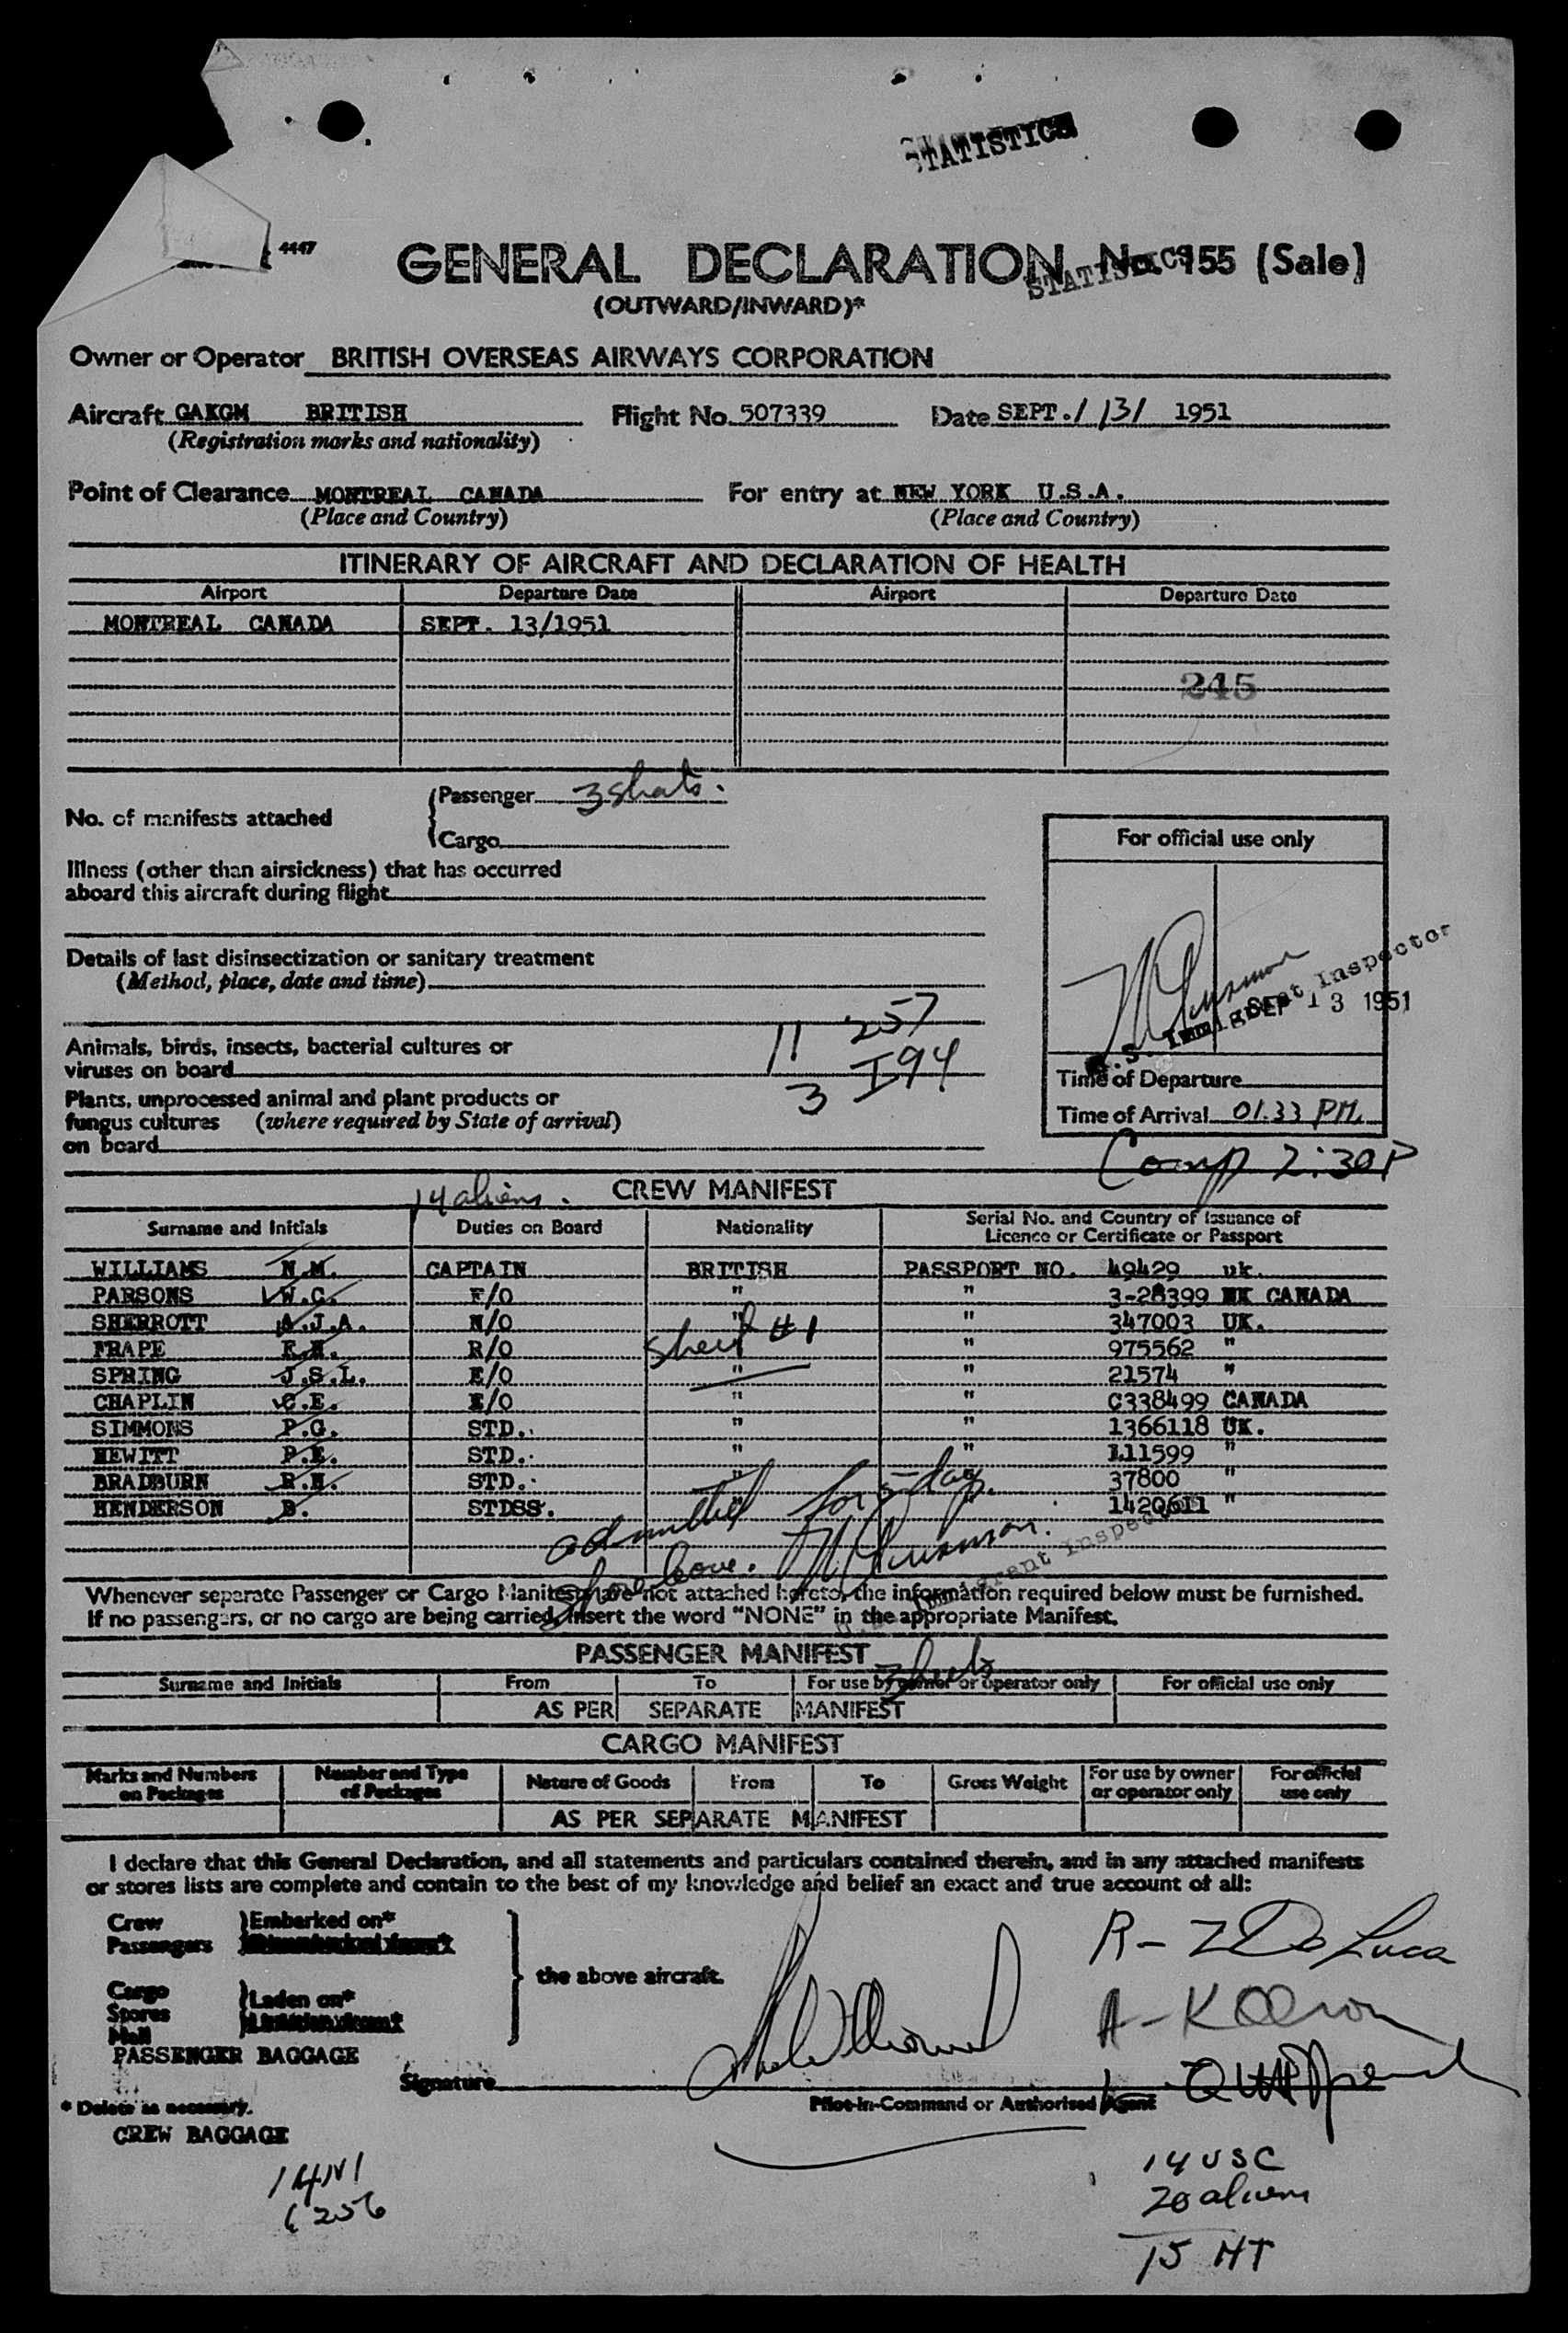 STATISTICS
4447
GENERAL DECLARATION No. 155 (Sale)
STATISTICS
(OUTWARD/INWARD)*
Owner or Operator BRITISH OVERSEAS AIRWAYS CORPORATION
Aircraft GAKGM BRITISH Flight No. 507339 Date SEPT./13/ 1951
(Registration marks and nationality)
Point of Clearance MONTREAL CANADA For entry at NEW YORK U.S.A.
(Place and Country) (Place and Country)
ITINERARY OF AIRCRAFT AND DECLARATION OF HEALTH
Airport Departure Date Airport Departure Date
MONTREAL CANADA SEPT. 13/1951
245
No. of manifests attached
Passenger 3 sheets.
Cargo
For official use only
Illness (other than airsickness) that has occurred
aboard this aircraft during flight
Details of last disinsectization or sanitary treatment
(Method, place, date and time)
U.S. Immigrant Inspector
SEP 13 1951
11 257
Animals, birds, insects, bacterial cultures or
viruses on board
3 I94
Time of Departure
Plants, unprocessed animal and plant products or
fungus cultures (where required by State of arrival)
on board
Time of Arrival 01.33 PM.
Comp 2:30P
14 aliens. CREW MANIFEST
Surname and Initials Duties on Board Nationality Serial No. and Country of Issuance of
Licence or Certificate or Passport
WILLIAMS N.M. CAPTAIN BRITISH PASSPORT NO. 49429 uk.
PARSONS W.C. F/O " " 3-28399 CANADA
SHERROTT A.J.A. N/O " " 347003 UK.
FRAPE E.H. R/O " 975562 "
Sheet #1
SPRING J.S.L. E/O " " 21574 "
CHAPLIN C.E. E/O " " C338499 CANADA
SIMMONS P.G. STD. " " 1366118 UK.
HEWITT P.E. STD. " " 111599 "
BRADBURN R.H. STD. " " 37800 "
HENDERSON B. STDSS. " " 1420611 "
admitted for 5 days.
shore leave.
Immigrant Inspector
Whenever separate Passenger or Cargo Manifests are not attached hereto, the information required below must be furnished.
If no passengers, or no cargo are being carried, insert the word "NONE" in the appropriate Manifest.
PASSENGER MANIFEST 3 sheets
Surname and Initials From To For use by owner or operator only For official use only
AS PER SEPARATE MANIFEST
CARGO MANIFEST
Marks and Numbers on Packages Number and Type of Packages Nature of Goods From To Gross Weight For use by owner or operator only For official use only
AS PER SEPARATE MANIFEST
I declare that this General Declaration, and all statements and particulars contained therein, and in any attached manifests
or stores lists are complete and contain to the best of my knowledge and belief an exact and true account of all:
Crew Embarked on*
Passengers
the above aircraft.
Cargo
Stores Laden on*
Mail
PASSENGER BAGGAGE
R - Z De Luca
A - K Olson
Signature
Pilot-in-Command or Authorised Agent
* Delete as necessary.
CREW BAGGAGE
14 USC
20 aliens
15 HT